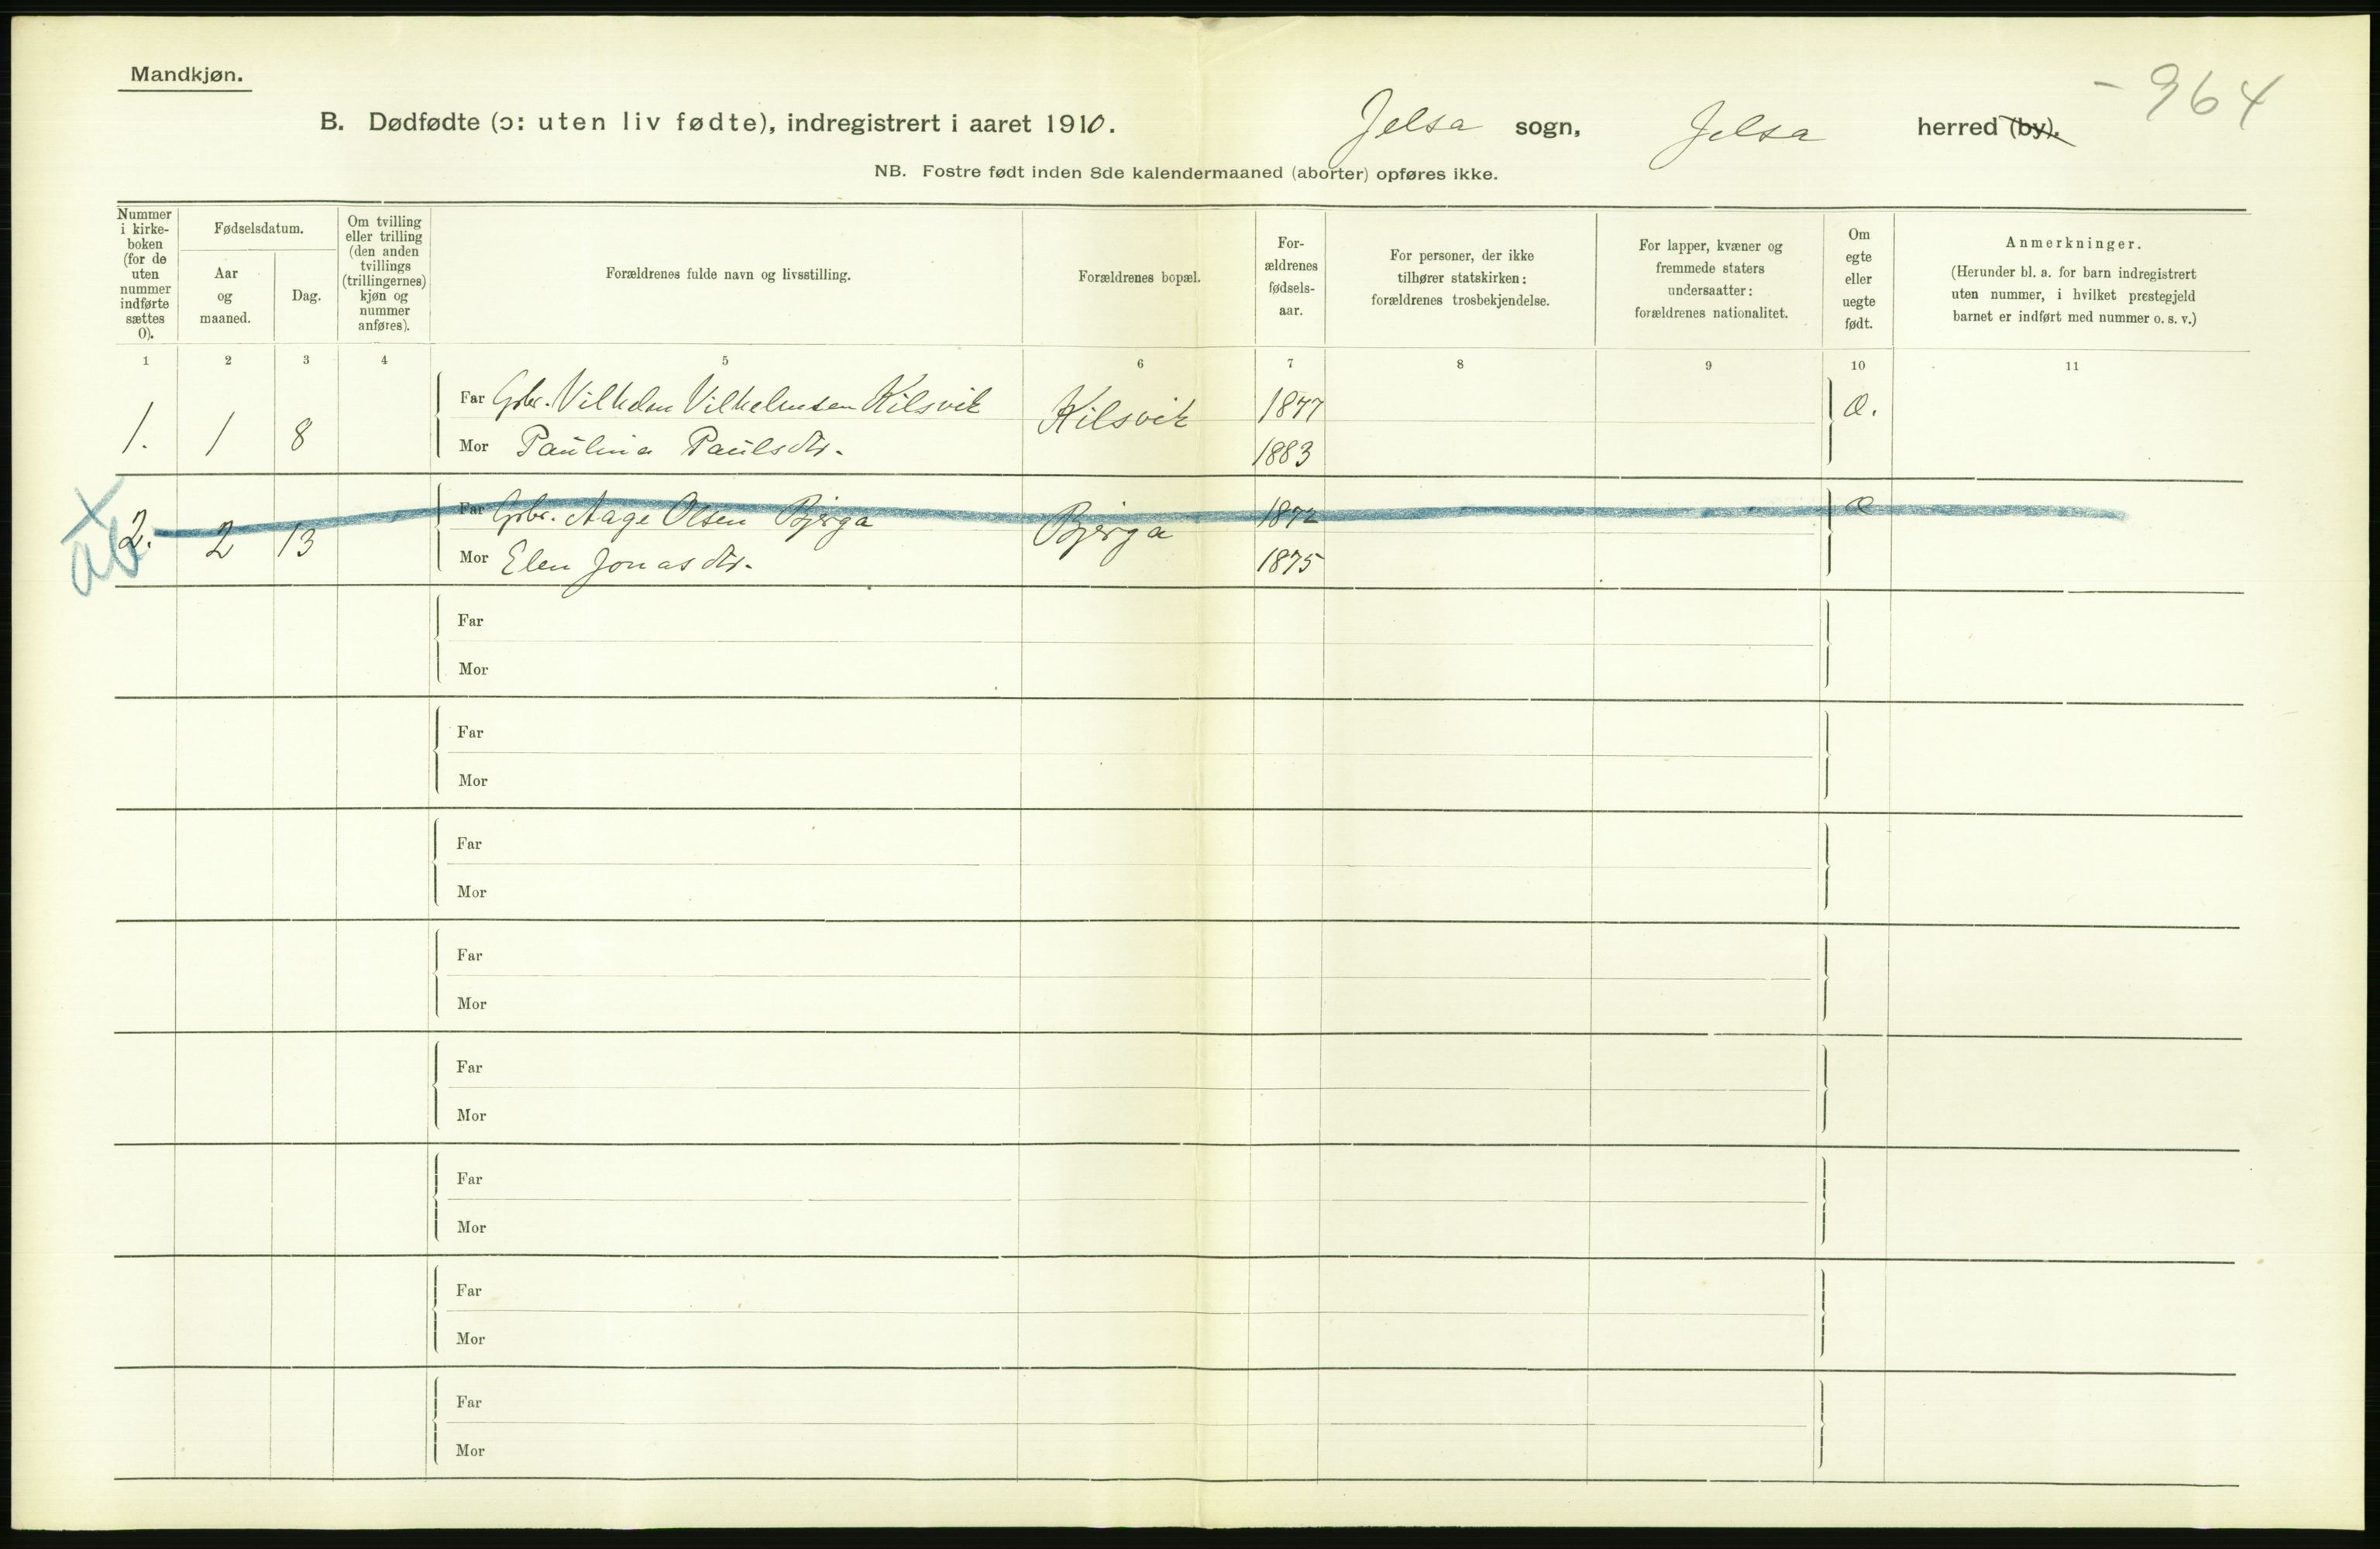 Mandkjøn.
- 964
B. Dødfødte (ɔ: uten liv fødte), indregistrert i aaret 1910. Jelsa sogn, Jelsa herred (by).
NB. Fostre født inden 8de kalendermaaned (aborter) opføres ikke.
Nummer
i kirke-
boken
(for de
uten
nummer
indførte
sættes
0).
Fødselsdatum.
Aar
og
maaned.
Dag.
Om tvilling
eller trilling
(den anden
tvillings
(trillingernes)
kjøn og
nummer
anføres).
Forældrenes fulde navn og livsstilling.
Forældrenes bopæl.
For-
ældrenes
fødsels-
aar.
For personer, der ikke
tilhører statskirken:
forældrenes trosbekjendelse.
For lapper, kvæner og
fremmede staters
undersaatter:
forældrenes nationalitet.
Om
egte
eller
uegte
født.
Anmerkninger.
(Herunder bl. a. for barn indregistrert
uten nummer, i hvilket prestegjeld
barnet er indført med nummer o. s. v.)
1 2 3 4 5 6 7 8 9 10 11
Far Gbr. Vilhelm Vilhelmsen Kilsvik Kilsvik 1877 æ.
1. 1 8 Mor Paulina Paulsdtr. 1883
Far Gbr. Aage Olsen Bjerga Bjerga 1872 æ
2. 2 13 Mor Elen Jonasdtr. 1875
Far
Mor
Far
Mor
Far
Mor
Far
Mor
Far
Mor
Far
Mor
Far
Mor
Far
Mor